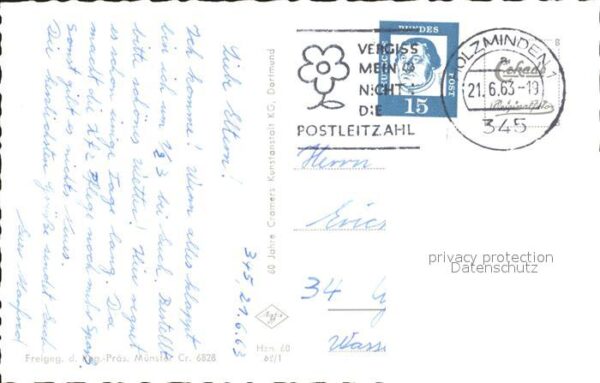 345, 21.6.63
Liebe Eltern!
Ich komme! Wenn alles klappt
bin ich um 1/2 3 bei Euch. Bestellt
bitte schönes Wetter! Hier regnet
es schon einige Tage lang. Da
macht die Kfz Pflege noch mehr Spass.
Sonst gibt es nichts Neues.
Die herzlichsten Grüße sendet Euch
Euer Manfred
Freigeg. d. Reg.-Präs. Münster Cr. 6828
60 Jahre Cramers Kunstanstalt KG, Dortmund
Hzn. 60
62/1
VERGISS
MEIN
NICHT
DIE
POSTLEITZAHL
BUNDES
POST
15
HOLZMINDEN 1
21.6.63-19
345
Cekade
Herrn
Eric
34 G
Wass
privacy protection
Datenschutz